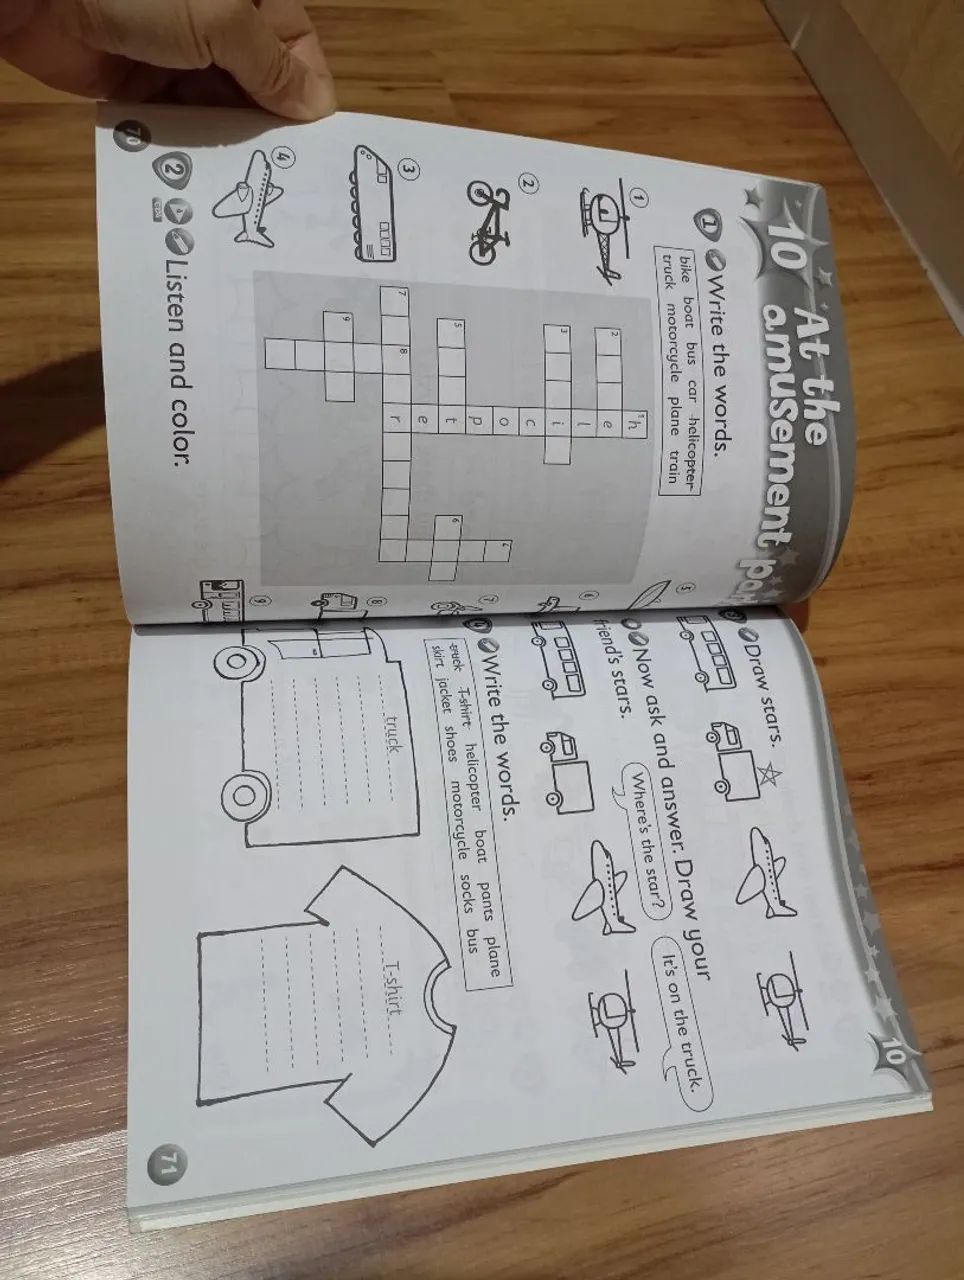 10 At the
amusement
1 Write the words.
bike boat bus car helicopter
truck motorcycle plane train
1
2
3
4
1h
2 e
l
3 i
c
o
p
5 t
e
7 8 r
9
6
5
6
7
8
9
2 Listen and color.
70
Draw stars.
Now ask and answer. Draw your
friend's stars.
Where's the star?
It's on the truck.
4 Write the words.
truck T-shirt helicopter boat pants plane
skirt jacket shoes motorcycle socks bus
truck
T-shirt
10
71